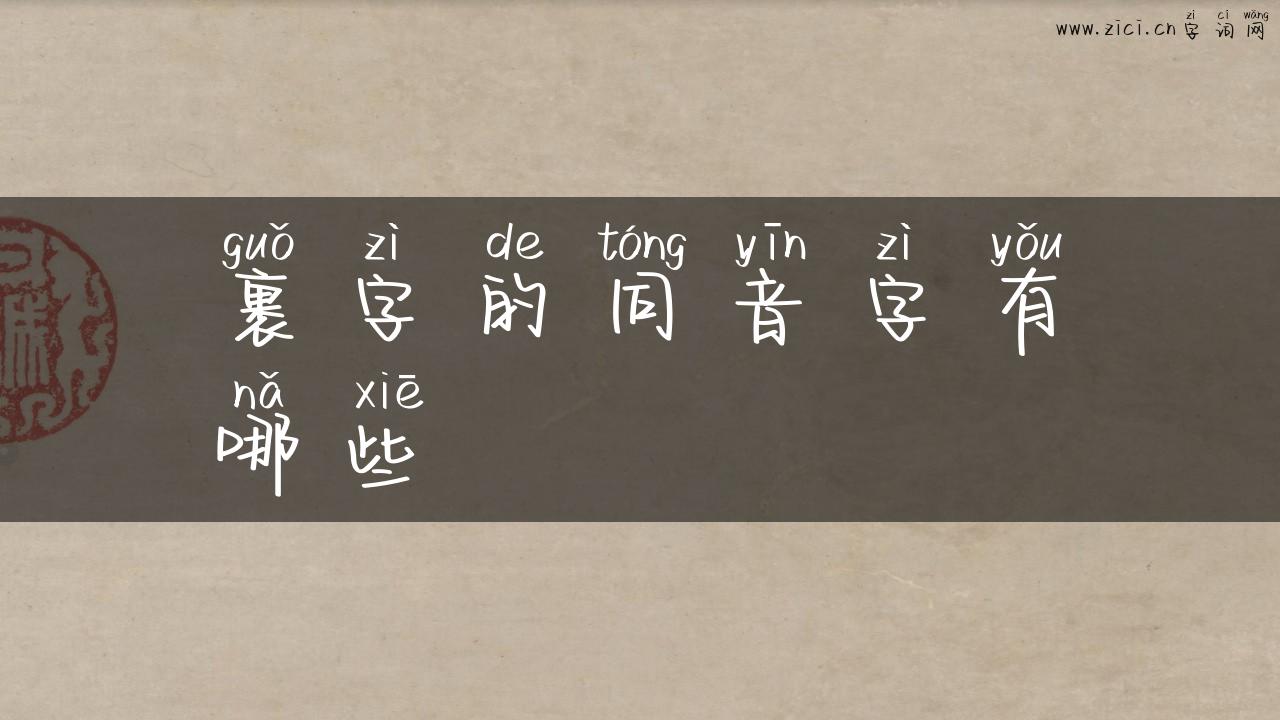 zì cí wǎng
www.zici.cn 字词网
guǒ zì de tóng yīn zì yǒu
裹字的同音字有
nǎ xiē
哪些